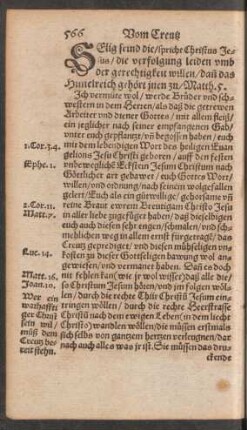 566 Vom Creutz
SElig seind die/spricht Christus Je-
sus/ die verfolgung leiden vmb
der gerechtigkeit willen/ dañ das
Himelreich gehört jnen zu/Matth.5.
Ich vermüte wol/ werde Brüder vnd schwe-
stern in dem Herren/ als daß die getrewen
Arbeiter vnd diener Gottes/ mit allem fleiß/
ein jeglicher nach seiner empfangenen Gab
vnter euch gepflantzt/vñ begossen haben/ euch
1.Cor.3.4. mit dem lebendigen Wort des heiligen Euan
gelions Jesu Christi geboren/ auff den festen
Ephe.1. vnbeweglichẽ Eckstein Jesum Christum nach
Göttlicher art gebawet/ euch Gottes Wort/
willen/vnd ordnung/ nach seinem wolgefallen
gelert/ Euch als ein gantzwillige/ gehorsame vñ
2.Cor.11. reine Braut ewrem Breutigam Christo Jesu
Matt.7. in aller liebe zugefüget haben/ daß dieselbigen
euch auch diesen sehr engen/schmalen/vnd sch-
mehlichen weg in allem ernst fürgetragẽ/ das
Creutz geprediget/ vnd diesen nühseligen vn-
Luc.14. kosten zu dieser Gottseligen bawung wol an-
geweiset/vnd vermanet haben. Daß es doch
Matt.16. nit fehlen kan/ wie jr wol wisset/ daß alle die/
Joan.10. so Christum Jesum hören/ vnd jm folgen wöllẽ
Wer ein len/ durch die rechte Thür Christũ Jesum ein-
warhaffti tringen wöllen/ durch die rechte Heerstrasse
ger Christ Christi nach dem ewigen Leben (in dem liecht
sein wil/ Christi) wandlen wöllen/die müssen erstmals
müß dem sich selbs von gantzem hertzen verleugnen/dar
Creuz be- nach auch alles was jr ist. Sie müssen das dru-
reit stehn. ckende